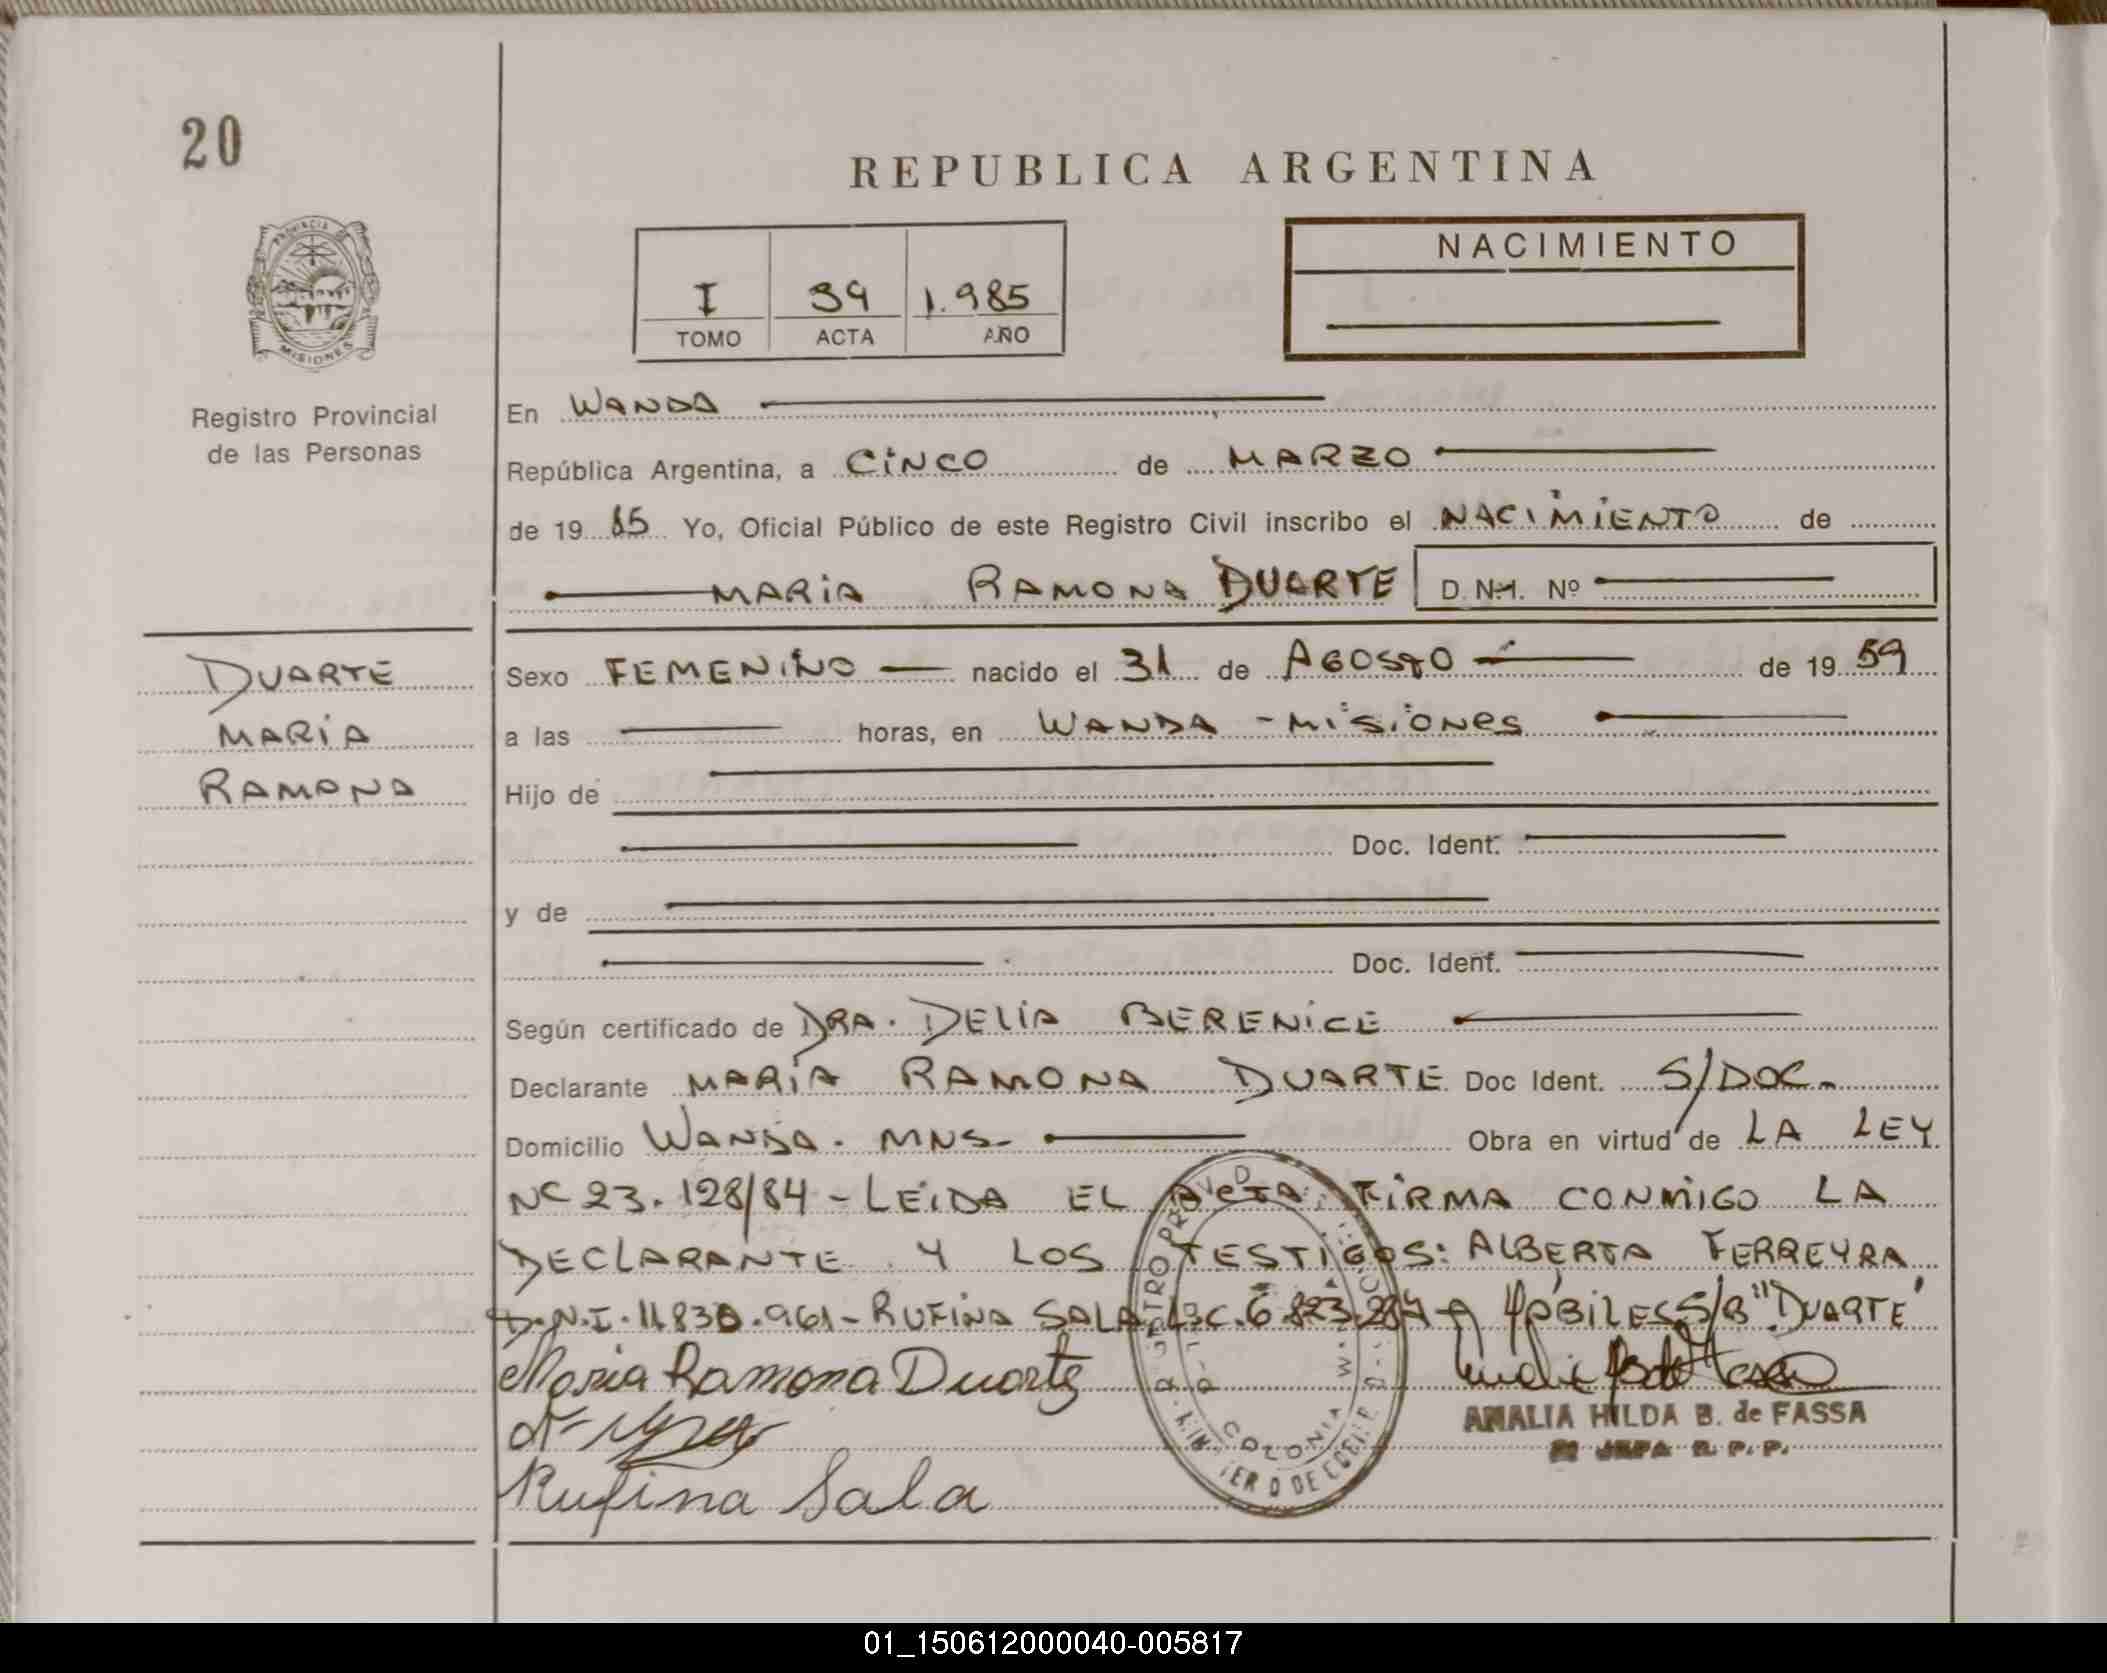 20
REPUBLICA ARGENTINA
PROVINCIA DE
MISIONES
Registro Provincial
de las Personas
I 39 1.985
TOMO ACTA AÑO
NACIMIENTO
En WANDA
República Argentina, a CINCO de MARZO
de 19 85 Yo, Oficial Público de este Registro Civil inscribo el NACIMIENTO de
MARIA RAMONA DUARTE D.N.I. Nº
DUARTE
MARIA
RAMONA
Sexo FEMENINO nacido el 31 de AGOSTO de 19 59
a las horas, en WANDA - MISIONES
Hijo de
Doc. Ident.
y de
Doc. Ident.
Según certificado de DRA. DELIA BERENICE
Declarante MARIA RAMONA DUARTE Doc Ident. S/DOC.
Domicilio WANDA. MNS. Obra en virtud de LA LEY
Nº 23.128/84 - LEIDA EL ACTA FIRMA CONMIGO LA
DECLARANTE Y LOS TESTIGOS: ALBERTA FERREYRA
D.N.I. 11.830.961 - RUFINA SALA L.C. 6.823.284 - S/B "DUARTE"
Maria Ramona Duarte
Rufina Sala
AMALIA HILDA B. de FASSA
JEFA R. P. P.
COLONIA
01_150612000040-005817